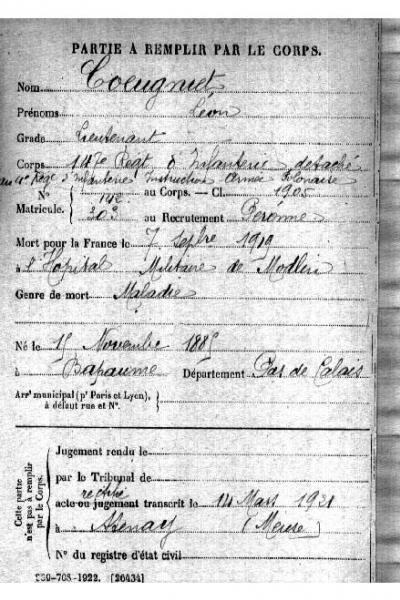 PARTIE À REMPLIR PAR LE CORPS.
Nom Coeugniet
Prénoms Léon
Grade Lieutenant
Corps 147e Regt d'Infanterie detaché
au 4e Rég d'Infanterie Instruction Armée Polonaise
N° 142 au Corps. — Cl. 1905
Matricule. 303 au Recrutement Peronne
Mort pour la France le 7 Septbre 1919
à l'Hopital Militaire de Modlin
Genre de mort Maladie
Né le 15 Novembre 1885
à Bapaume Département Pas de Calais
Arrt municipal (pr Paris et Lyon),
à défaut rue et N°.
Cette partie
n'est pas à remplir
par le Corps.
Jugement rendu le
par le Tribunal de
rectifié
acte ou jugement transcrit le 14 Mars 1921
à Stenay (Meuse)
N° du registre d'état civil
-708-1922. [26434]